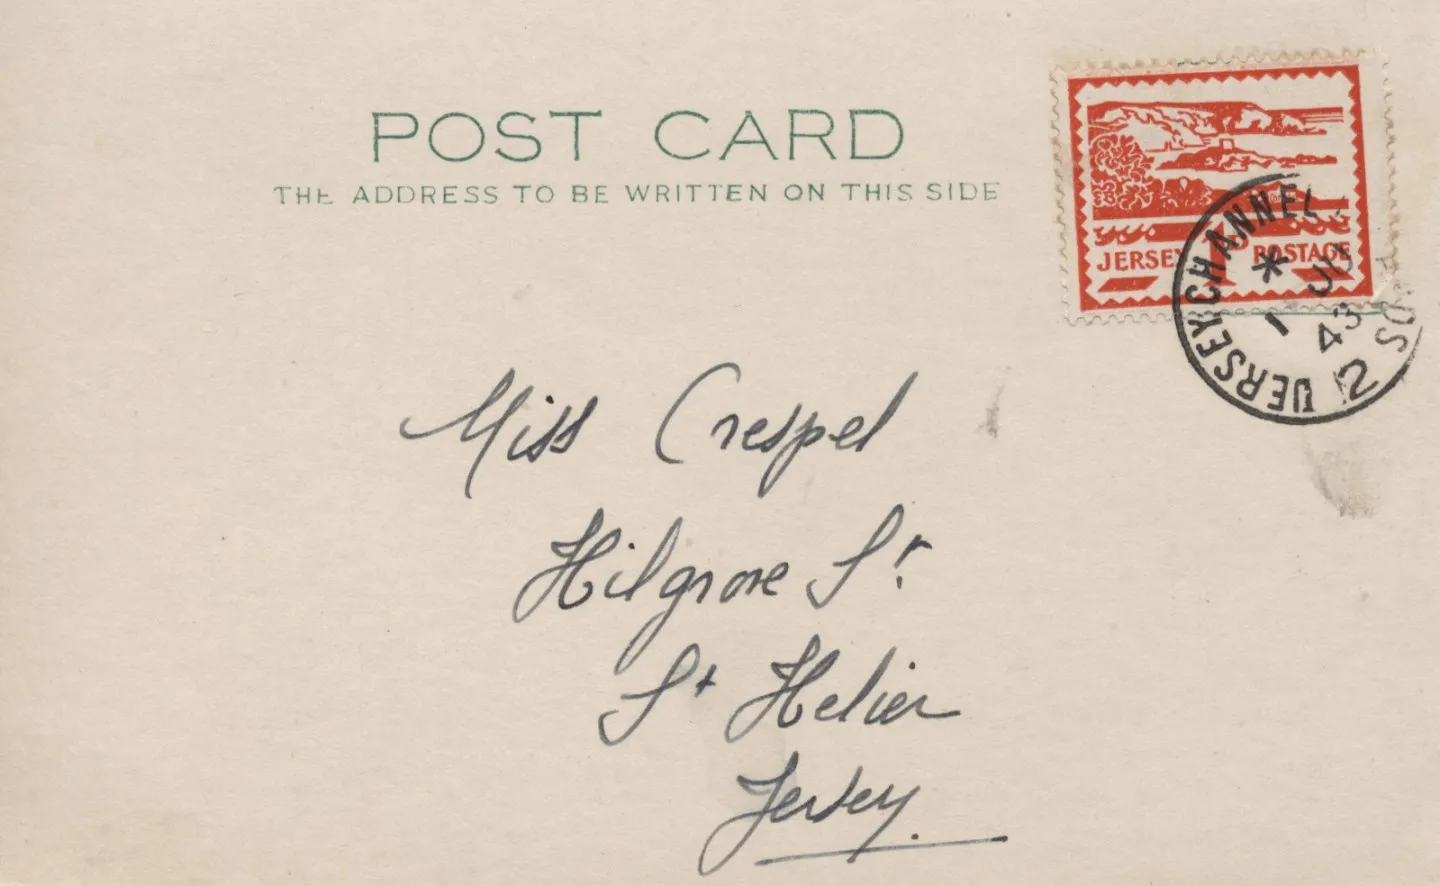 POST CARD
THE ADDRESS TO BE WRITTEN ON THIS SIDE
JERSEY POSTAGE
JERSEY CHANNEL
* 1 JU
43
2
Miss Crespel
Hilgrove St.
St Helier
Jersey.